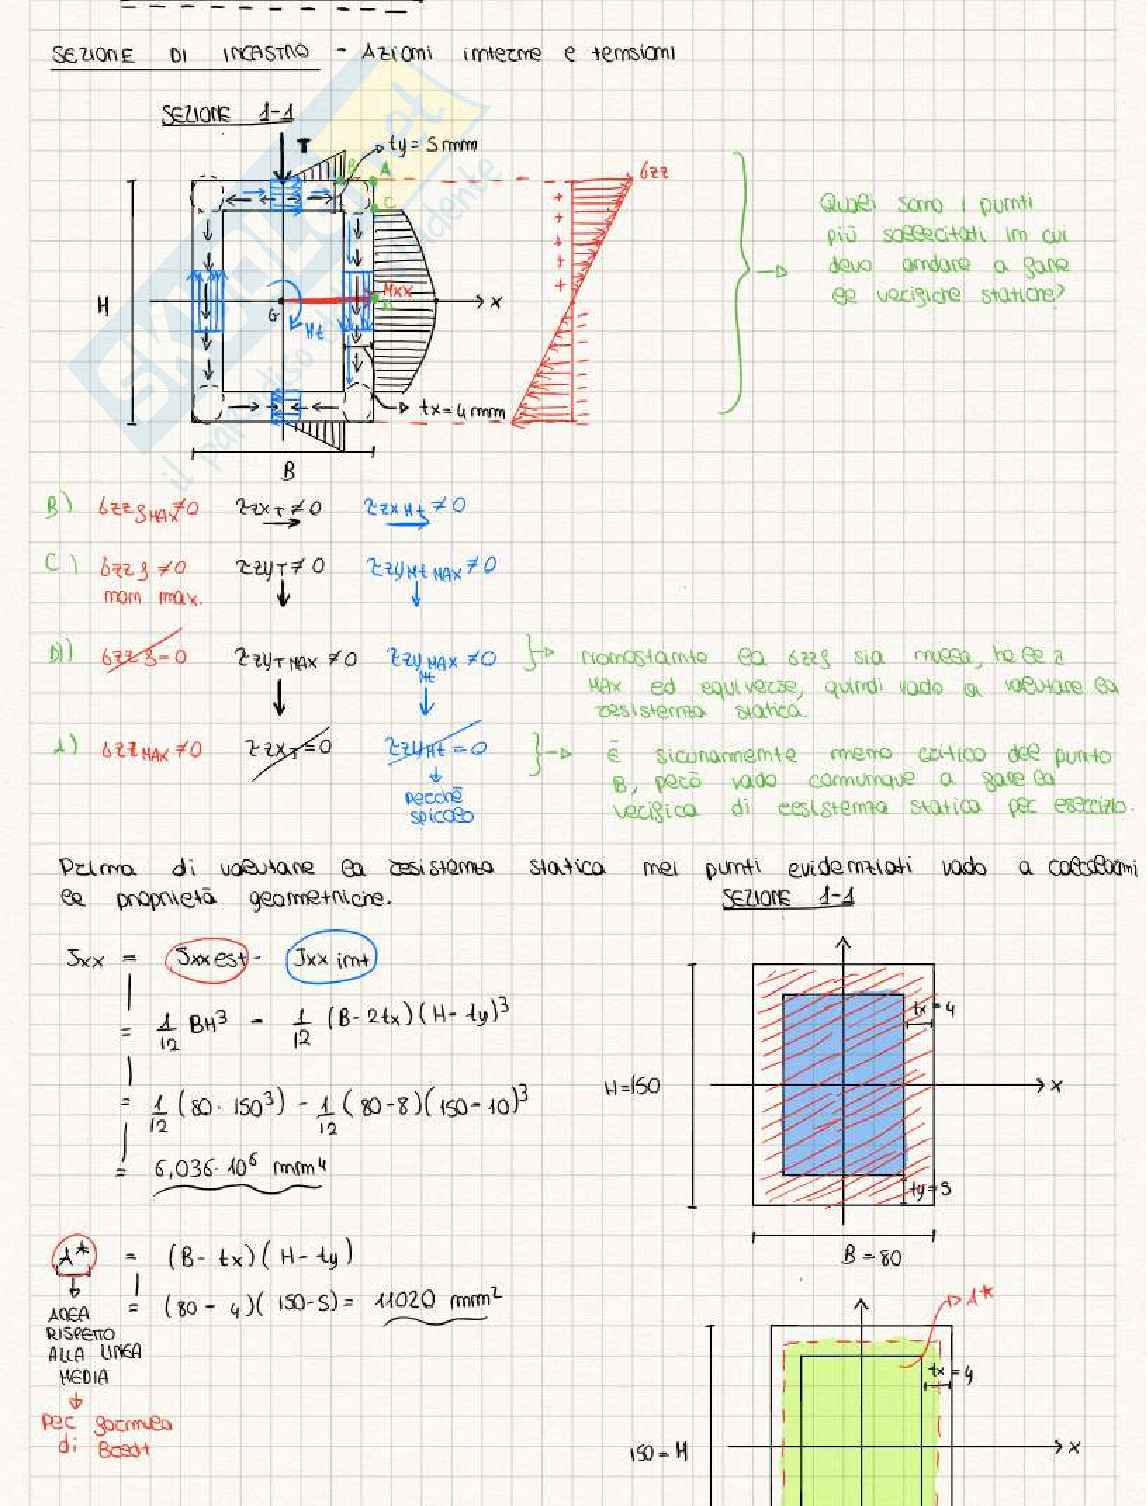 SEZIONE DI INCASTRO - Azioni interne e tensioni
SEZIONE 1-1
T
ty = 5mm
B
A
C
σzz
+
+
+
+
+
H
G
Mt
Mxx
x
tx = 4mm
B
Quali sono i punti
più sollecitati in cui
devo andare a fare
le verifiche statiche?
B) σzz f MAX ≠ 0 τzx T ≠ 0 τzx Mt ≠ 0
C) σzz f ≠ 0 τzy T ≠ 0 τzy Mt MAX ≠ 0
non max.
D) σzz f = 0 τzy T MAX ≠ 0 τzy MAX Mt ≠ 0
Nonostante la σzz f sia nulla, ho le τ
MAX ed equiverse, quindi vado a valutare la
resistenza statica.
A) σzz MAX ≠ 0 τzx T = 0 τzy Mt = 0
perché
spigolo
È sicuramente meno critico del punto
B, però vado comunque a fare la
verifica di resistenza statica per esercizio.
Prima di valutare la resistenza statica nei punti evidenziati vado a calcolarmi
le proprietà geometriche.
SEZIONE 1-1
Jxx = Jxx est - Jxx int
= 1/12 BH³ - 1/12 (B-2tx)(H-ty)³
= 1/12 (80·150³) - 1/12 (80-8)(150-10)³
= 6,036·10⁶ mm⁴
tx = 4
H=150
x
ty=5
B=80
A* = (B-tx)(H-ty)
= (80-4)(150-5) = 11020 mm²
AREA
RISPETTO
ALLA LINEA
MEDIA
per formula
di Bredt
A*
tx = 4
150 = H
x
skuola.net
il paradiso dello studente